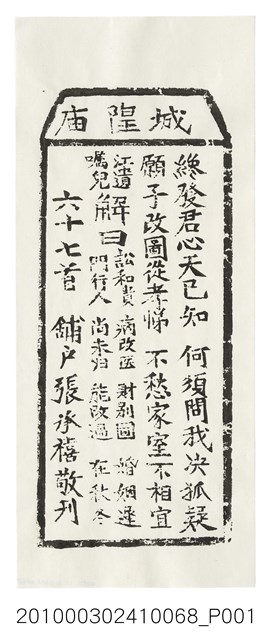 城隍庙
終發君心天已知 何須問我决狐疑
願子改圖從孝悌 不愁家室不相宜
江遺
囑兒
解曰
訟和貴 病改医 財别圖 婚姻遲
問行人 尚未归 能改過 在秋冬
六十七首 鋪户張承禧敬刊
201000302410068_P001